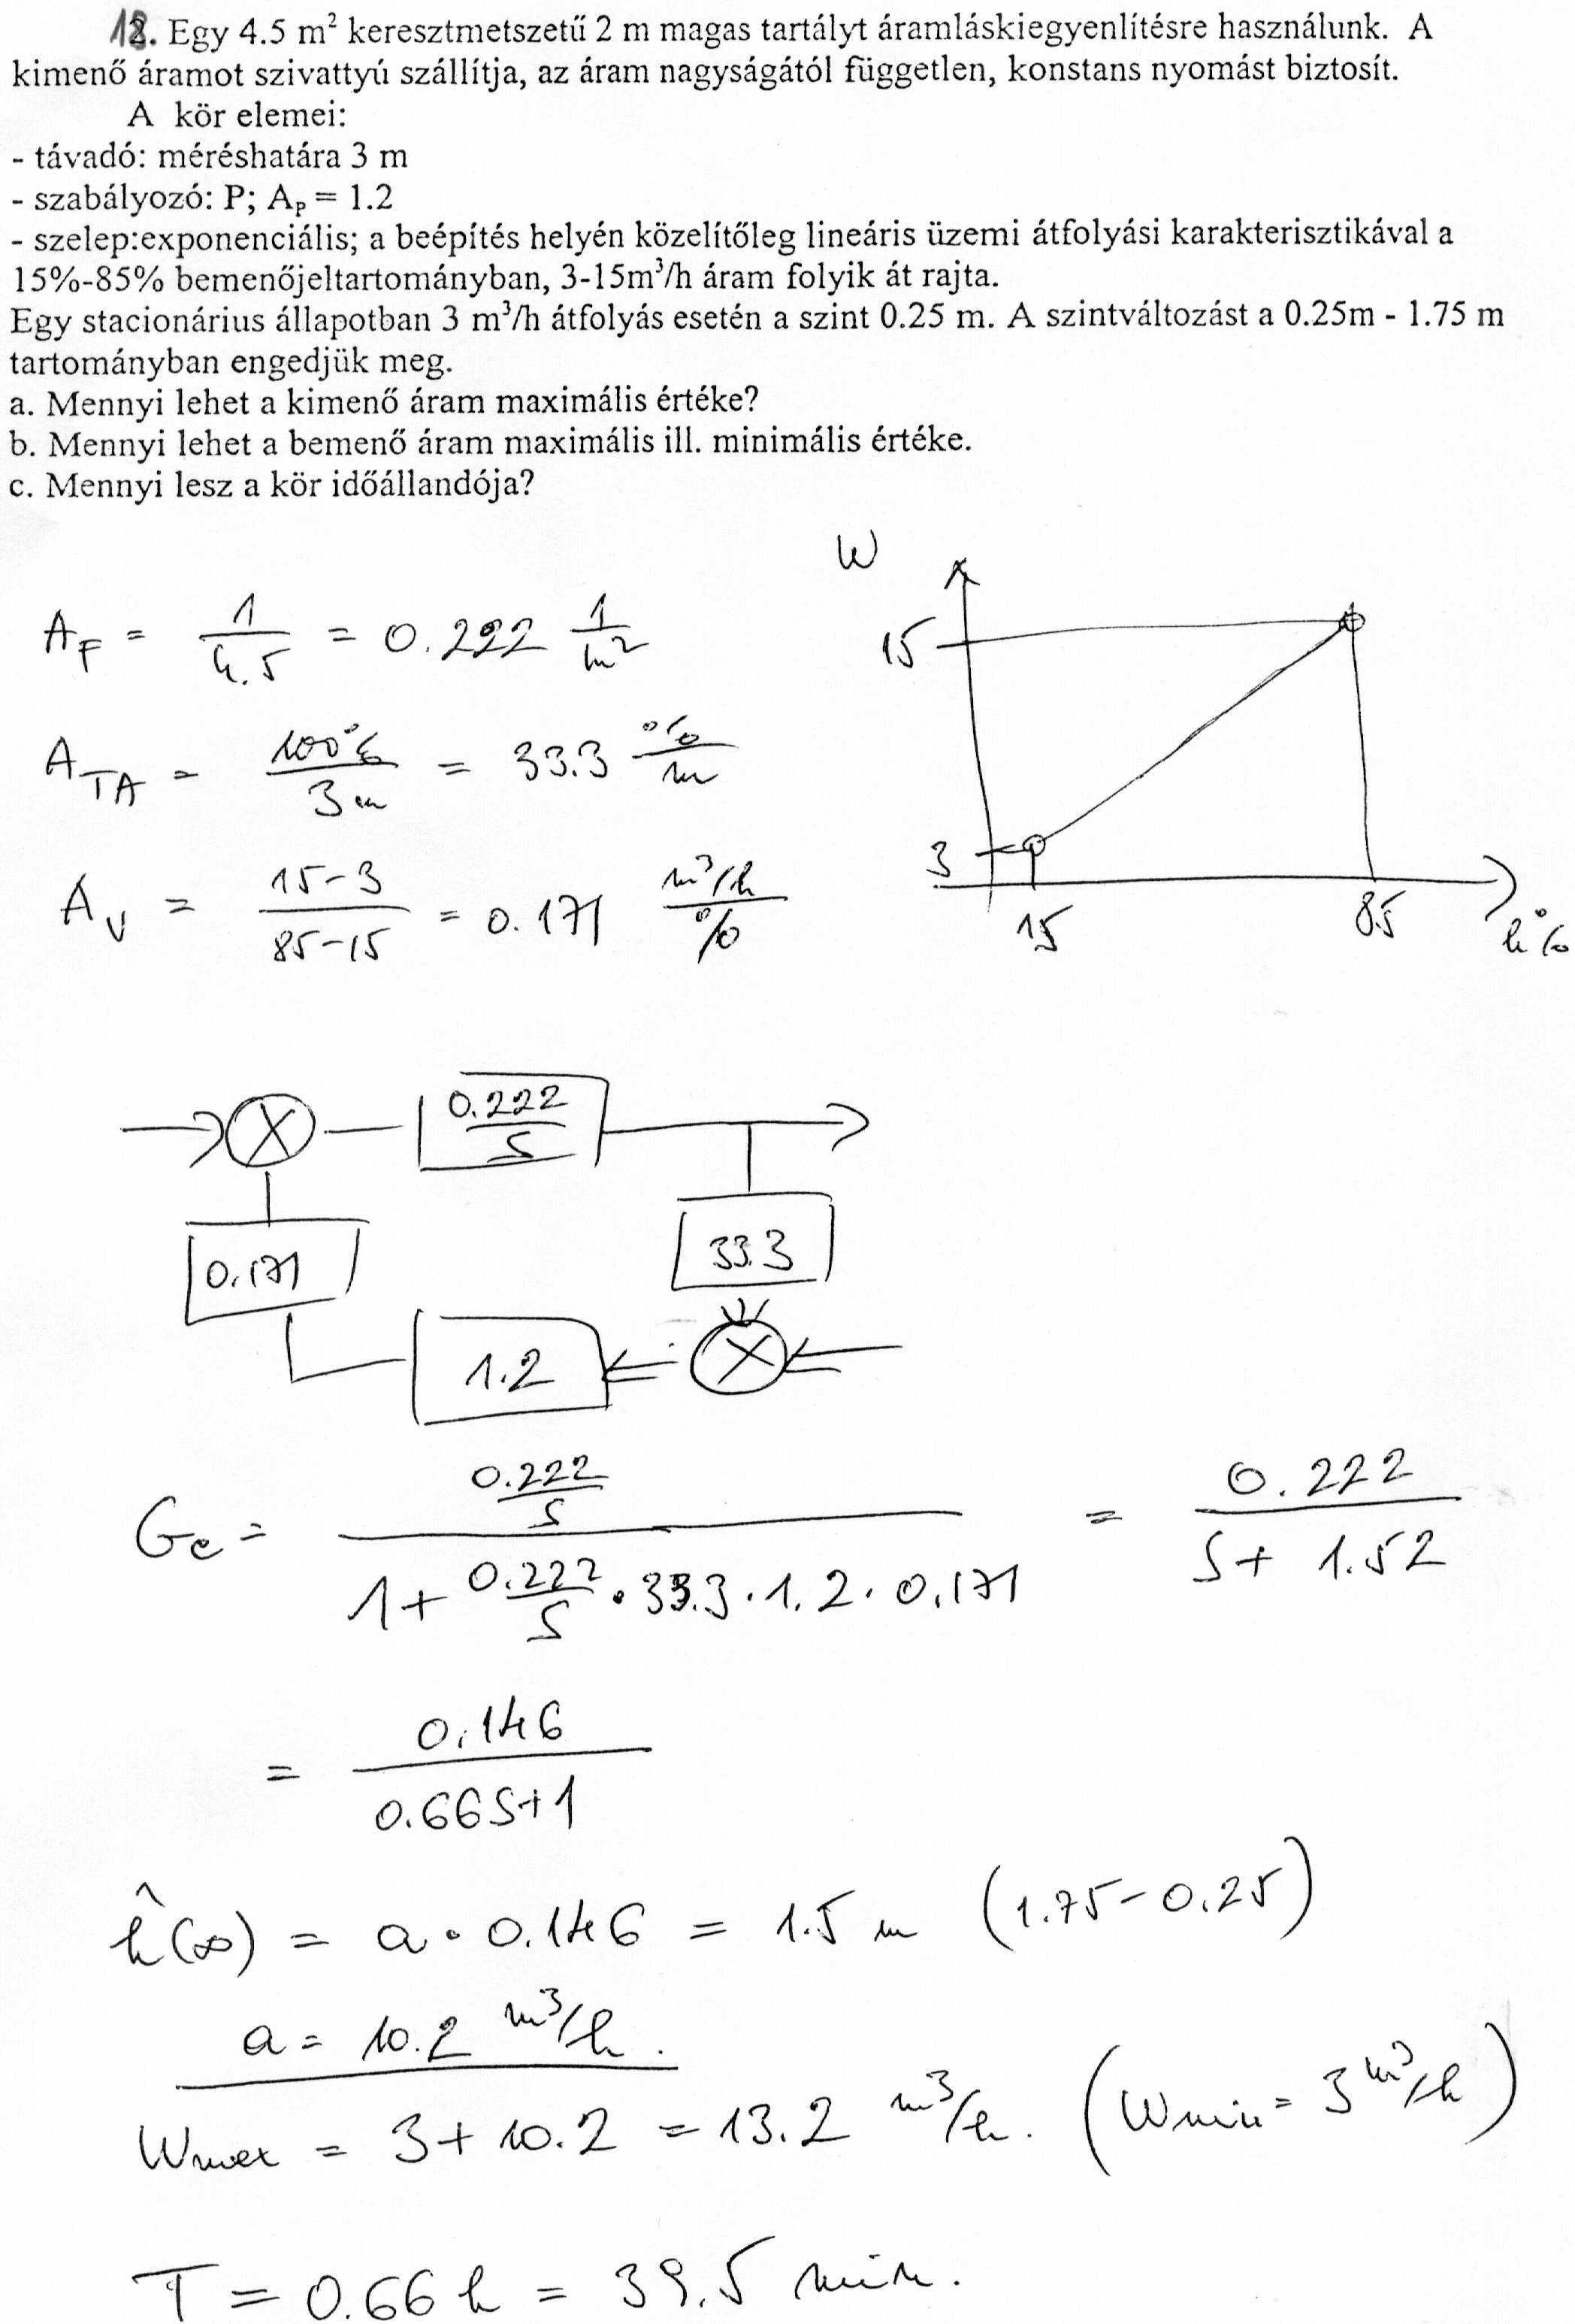 18. Egy 4.5 m² keresztmetszetű 2 m magas tartályt áramláskiegyenlítésre használunk. A
kimenő áramot szivattyú szállítja, az áram nagyságától független, konstans nyomást biztosít.
A kör elemei:
- távadó: méréshatára 3 m
- szabályozó: P; A_P = 1.2
- szelep:exponenciális; a beépítés helyén közelítőleg lineáris üzemi átfolyási karakterisztikával a
15%-85% bemenőjeltartományban, 3-15m³/h áram folyik át rajta.
Egy stacionárius állapotban 3 m³/h átfolyás esetén a szint 0.25 m. A szintváltozást a 0.25m - 1.75 m
tartományban engedjük meg.
a. Mennyi lehet a kimenő áram maximális értéke?
b. Mennyi lehet a bemenő áram maximális ill. minimális értéke.
c. Mennyi lesz a kör időállandója?
W
A_F = 1/4.5 = 0.222 1/m²
15
A_TA = 100%/3m = 33.3 %/m
A_v = 15-3/85-15 = 0.171 m³/h/%
3
15
85
h%
0.222/s
0.171
33.3
1.2
G_e = 0.222/s / 1+ 0.222/s · 33.3 · 1.2 · 0.171 = 0.222/s+ 1.52
= 0.146/0.66s+1
ĥ(∞) = a · 0.146 = 1.5 m (1.75-0.25)
a = 10.2 m³/h.
Wmax = 3+10.2 = 13.2 m³/h. (Wmin = 3 m³/h)
T = 0.66 h = 39.5 min.